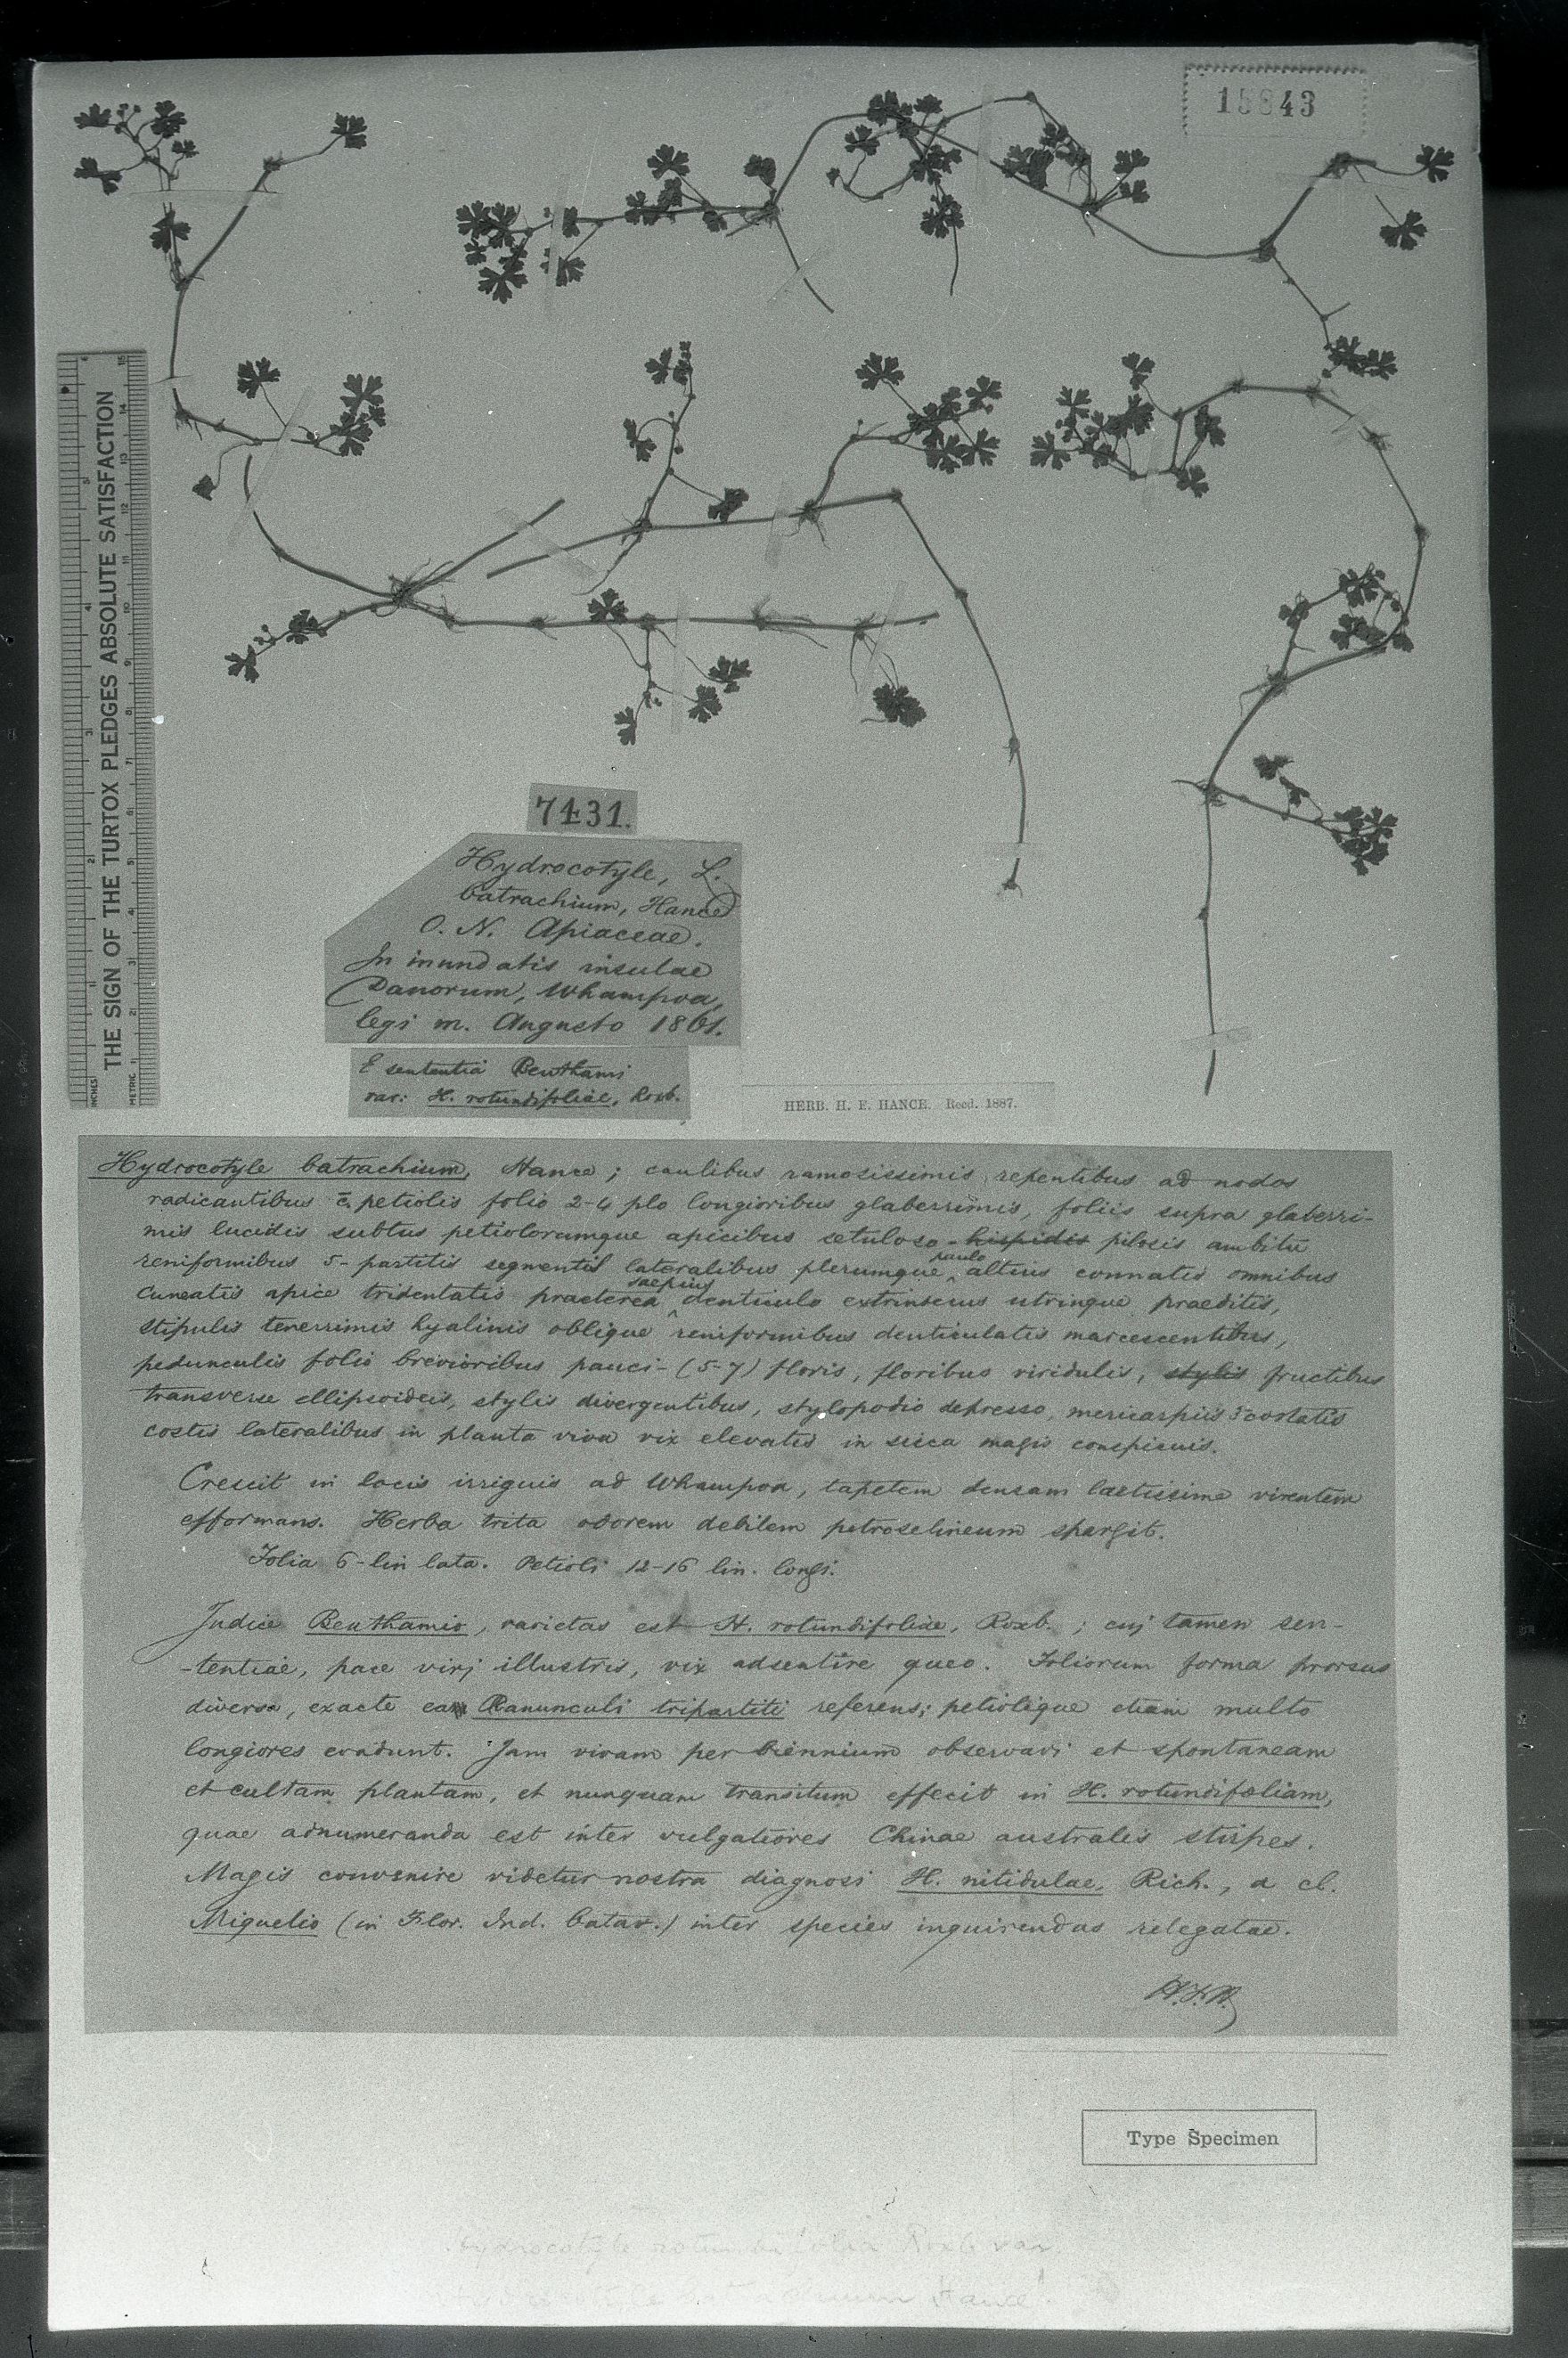 15843
THE SIGN OF THE TURTOX PLEDGES ABSOLUTE SATISFACTION
INCHES
METRIC
7431.
Hydrocotyle, L.
batrachium, Hance
O. N. Apiaceae.
In inundatis insulae
Danorum, Whampoa,
legi m. Augusto 1861.
E sententiâ Benthami
var: H. rotundifoliae, Roxb.
HERB. H. F. HANCE. Recd. 1887.
Hydrocotyle batrachium, Hance; caulibus ramosissimis repentibus ad nodos
radicantibus c. petiolis folio 2-4 plo longioribus glaberrimis, foliis supra glaberri-
mis lucidis subtus petiolorumque apicibus setuloso-hispidis pilosis ambitu
reniformibus 5-partitis segmentis lateralibus plerumque paulo altius connatis omnibus
cuneatis apice tridentatis praeterea saepius denticulo extrinsecus utrinque praeditis,
stipulis tenerrimis hyalinis oblique reniformibus denticulatis marcescentibus,
pedunculis folio brevioribus pauci-(5-7) floris, floribus viridulis, stylis fructibus
transverse ellipsoideis, stylis divergentibus, stylopodio depresso, mericarpiis 3 costatis
costis lateralibus in planta viva vix elevatis in sicca magis conspicuis.
Crescit in locis irriguis ad Whampoa, tapetem densam laetissime virentem
efformans. Herba trita odorem debilem petroselineum spargit.
Folia 6-lin lata. Petioli 12-16 lin. longi.
Judice Benthamio, varietas est H. rotundifoliae, Roxb.; cuj tamen sen-
-tentiae, pace virj illustris, vix adsentire queo. Foliorum forma prorsus
diversa, exacte ea Ranunculi tripartiti referens; petiolique etiam multo
longiores evadunt. Jam vivam per biennium observavi et spontaneam
et cultam plantam, et nunquam transitum effecit in H. rotundifoliam,
quae adnumeranda est inter vulgatiores Chinae australis stirpes.
Magis convenire videtur nostra diagnosi H. nitidulae, Rich., a cl.
Miquelio (in Flor. Ind. batav.) inter species inquirendas relegatae.
H.F.H.
Type Specimen
Hydrocotyle rotundifolia Roxb var.
Hance